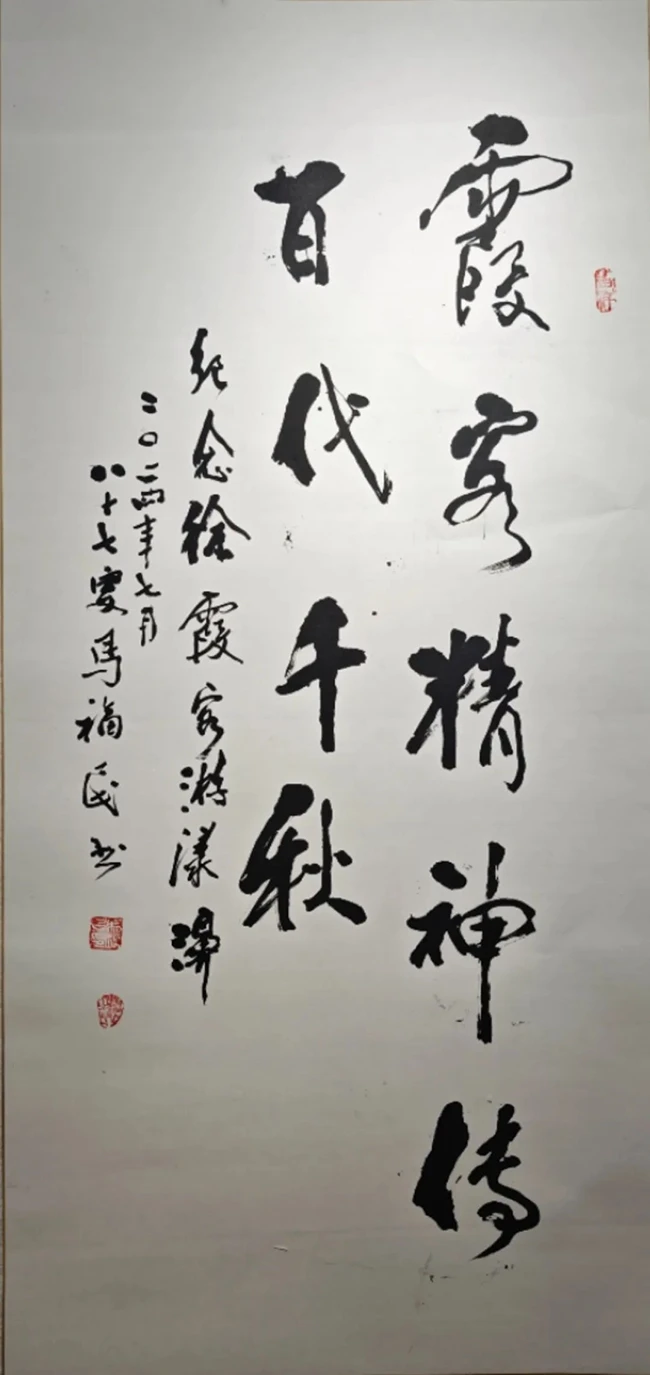 霞客精神傳
百代千秋
纪念徐霞客游漾濞
二〇二四年七月
八十七叟馬福民书